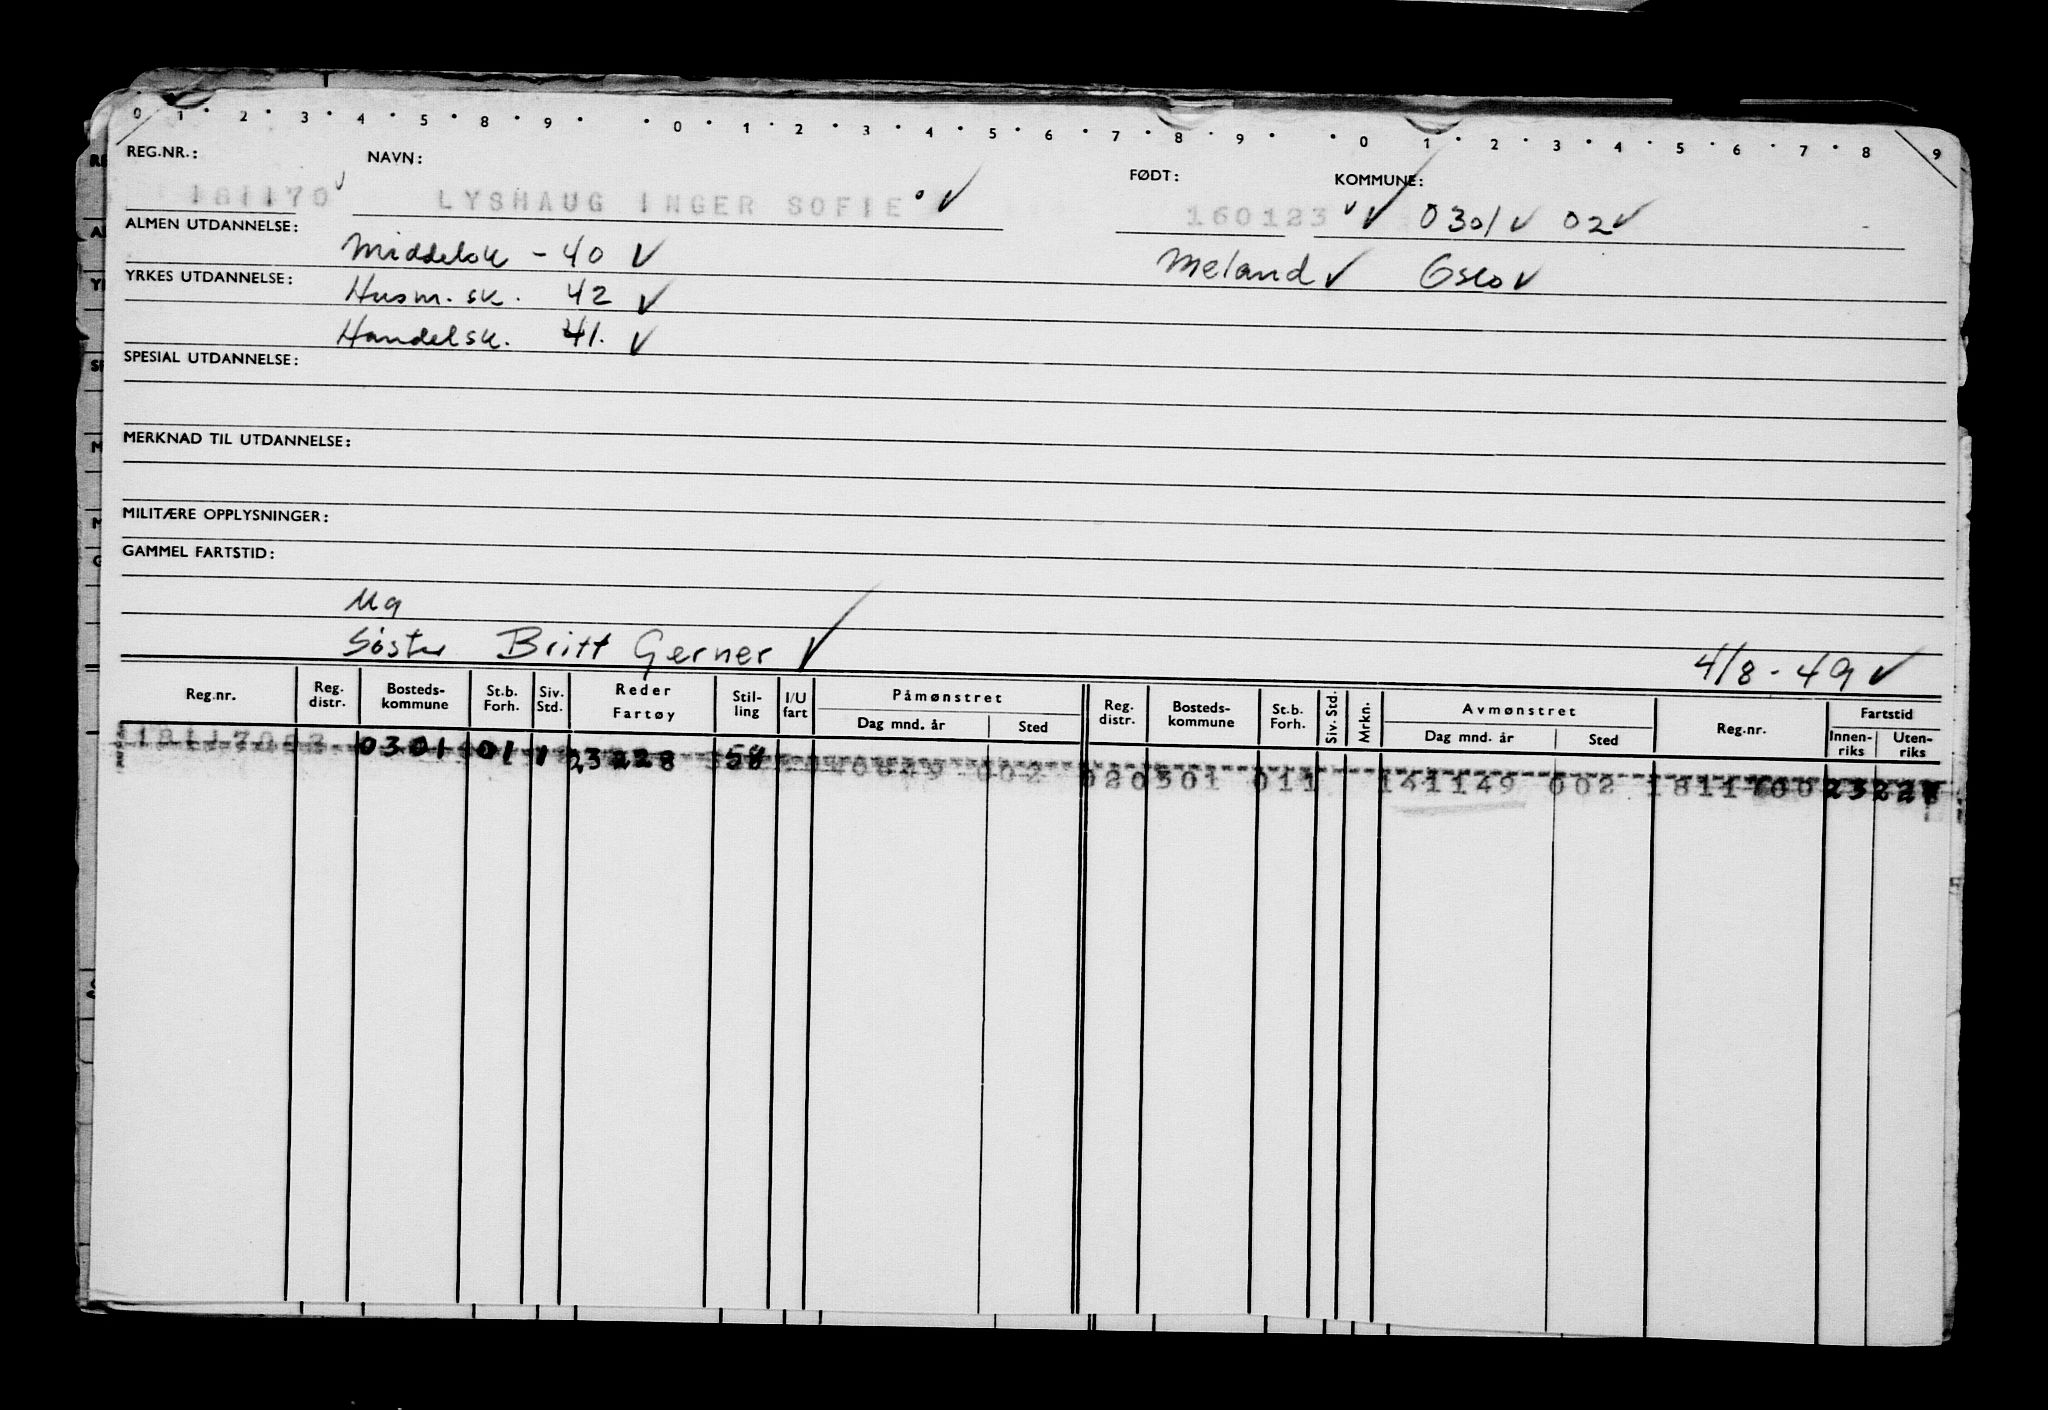 0 · 1 · 2 · 3 · 4 · 5 · 8 · 9 · · 0 · 1 · 2 · 3 · 4 · 5 · 6 · 7 · 8 · 9 · · 0 · 1 · 2 · 3 · 4 · 5 · 6 · 7 · 8 9
REG.NR.: NAVN: FØDT: KOMMUNE:
181170 LYSHAUG INGER SOFIE 160123 0301 02
ALMEN UTDANNELSE: Middelsk - 40 Meland Oslo
YRKES UTDANNELSE: Husm. sk. 42
Handelsk. 41.
SPESIAL UTDANNELSE:
MERKNAD TIL UTDANNELSE:
MILITÆRE OPPLYSNINGER:
GAMMEL FARTSTID:
Ug
Søster Britt Gerner 4/8 - 49
Reg.nr. Reg. distr. Bosteds-kommune St.b. Forh. Siv. Std. Reder Fartøy Stil-ling I/U fart Påmønstret Dag mnd. år Sted Reg. distr. Bosteds-kommune St.b. Forh. Siv. Std. Mrkn. Avmønstret Dag mnd. år Sted Reg.nr. Fartstid Innen-riks Uten-riks
0301 01 1 23228 002 020301 011 141149 002 1811700